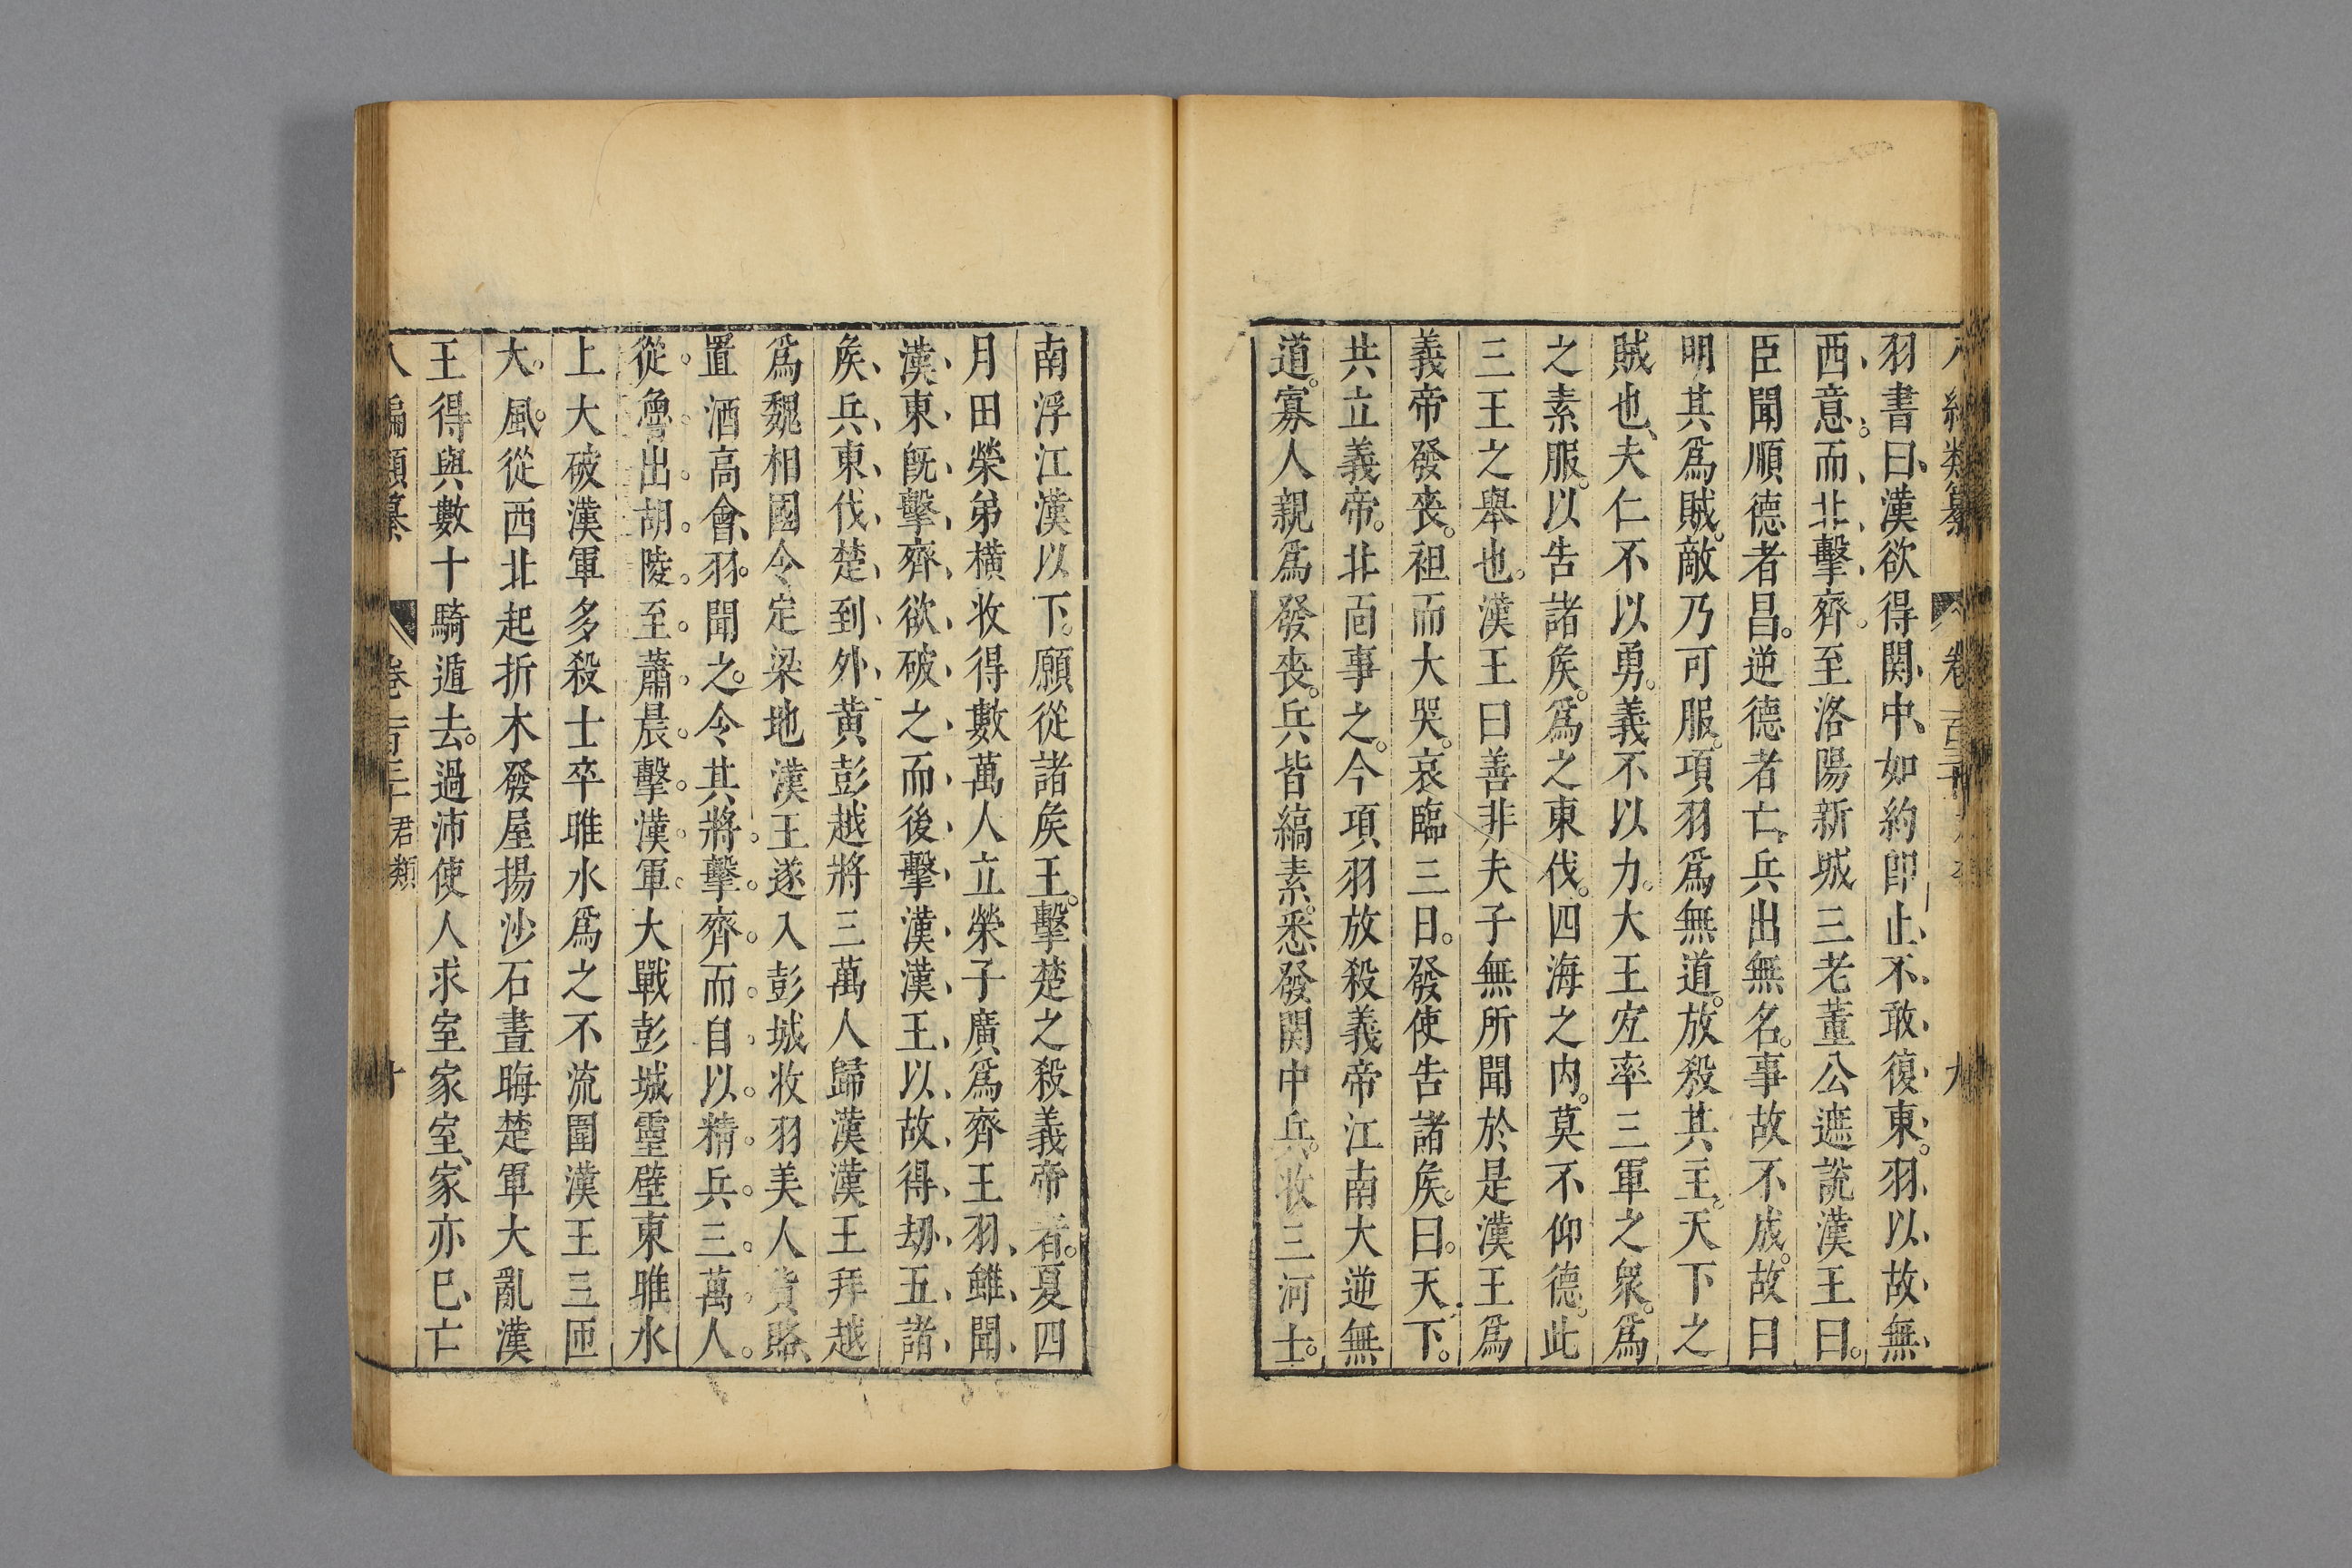 羽書曰漢欲得関中如約卽止不敢復東羽以故無
西意而北擊齊至洛陽新城三老董公遮說漢王曰
臣聞順德者昌逆德者亡兵出無名事故不成故曰
明其爲賊敵乃可服項羽爲無道放殺其主天下之
賊也夫仁不以勇義不以力大王宐率三軍之衆爲
之素服以告諸矦爲之東伐四海之内莫不仰德此
三王之舉也漢王曰善非夫子無所聞於是漢王爲
義帝發丧袒而大哭哀臨三日發使告諸矦曰天下
共立義帝北面事之今項羽放殺義帝江南大逆無
道寡人親爲發丧兵皆縞素悉發関中兵收三河士
南浮江漢以下願從諸矦王擊楚之殺義帝者夏四
月田榮弟橫收得數萬人立榮子廣爲齊王羽雖聞
漢東旣擊齊欲破之而後擊漢漢王以故得劫五諸
矦兵東伐楚到外黄彭越將三萬人歸漢漢王拜越
爲魏相國令定梁地漢王遂入彭城收羽美人貨賂
置酒高會羽聞之令其將擊齊而自以精兵三萬人
從魯出胡陵至蕭晨擊漢軍大戰彭城靈壁東睢水
上大破漢軍多殺士卒睢水爲之不流圍漢王三匝
大風從西北起折木發屋揚沙石晝晦楚軍大亂漢
王得與數十騎遁去過沛使人求室家室家亦已亡
八編類纂 卷一百三十 君類